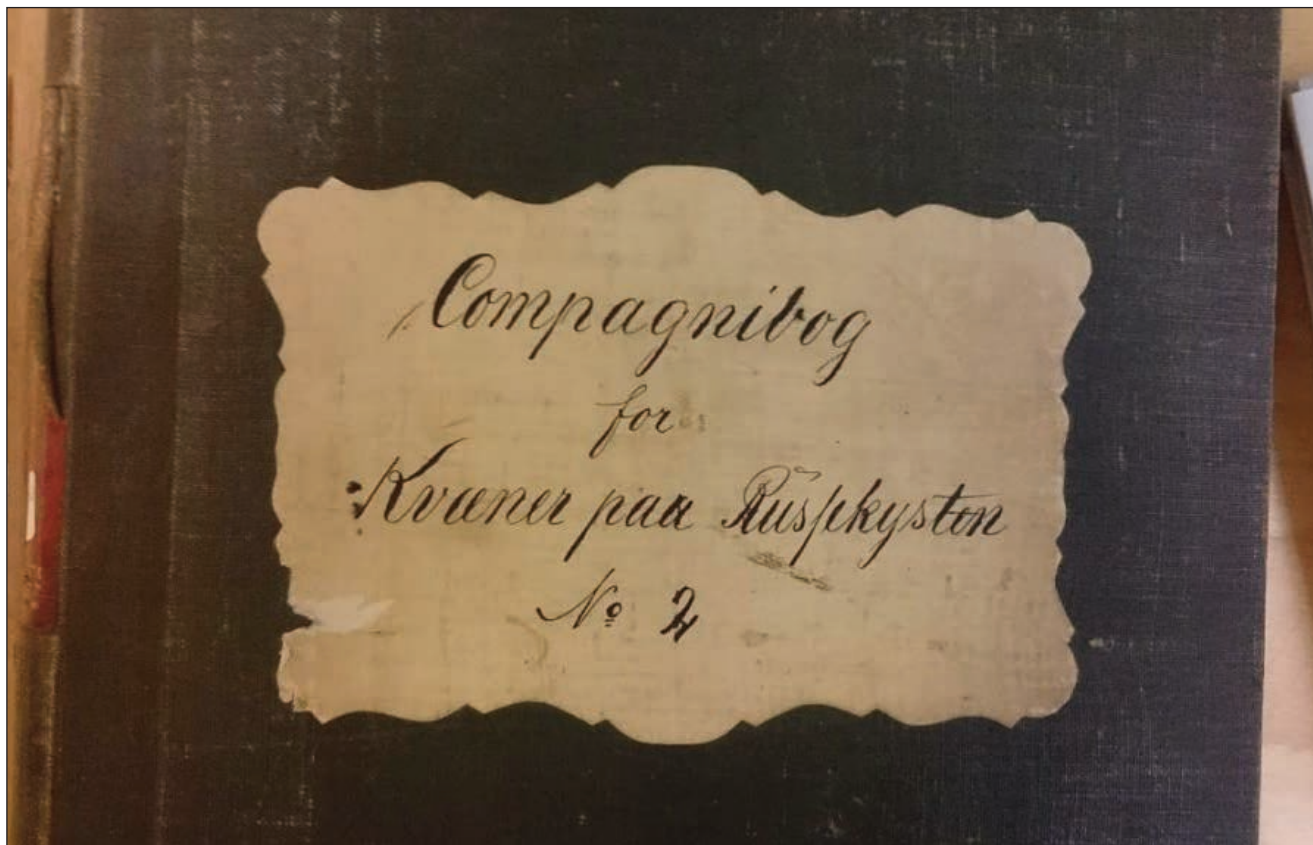 Compagnibog
for
Kvæner paa Russekysten
No 2